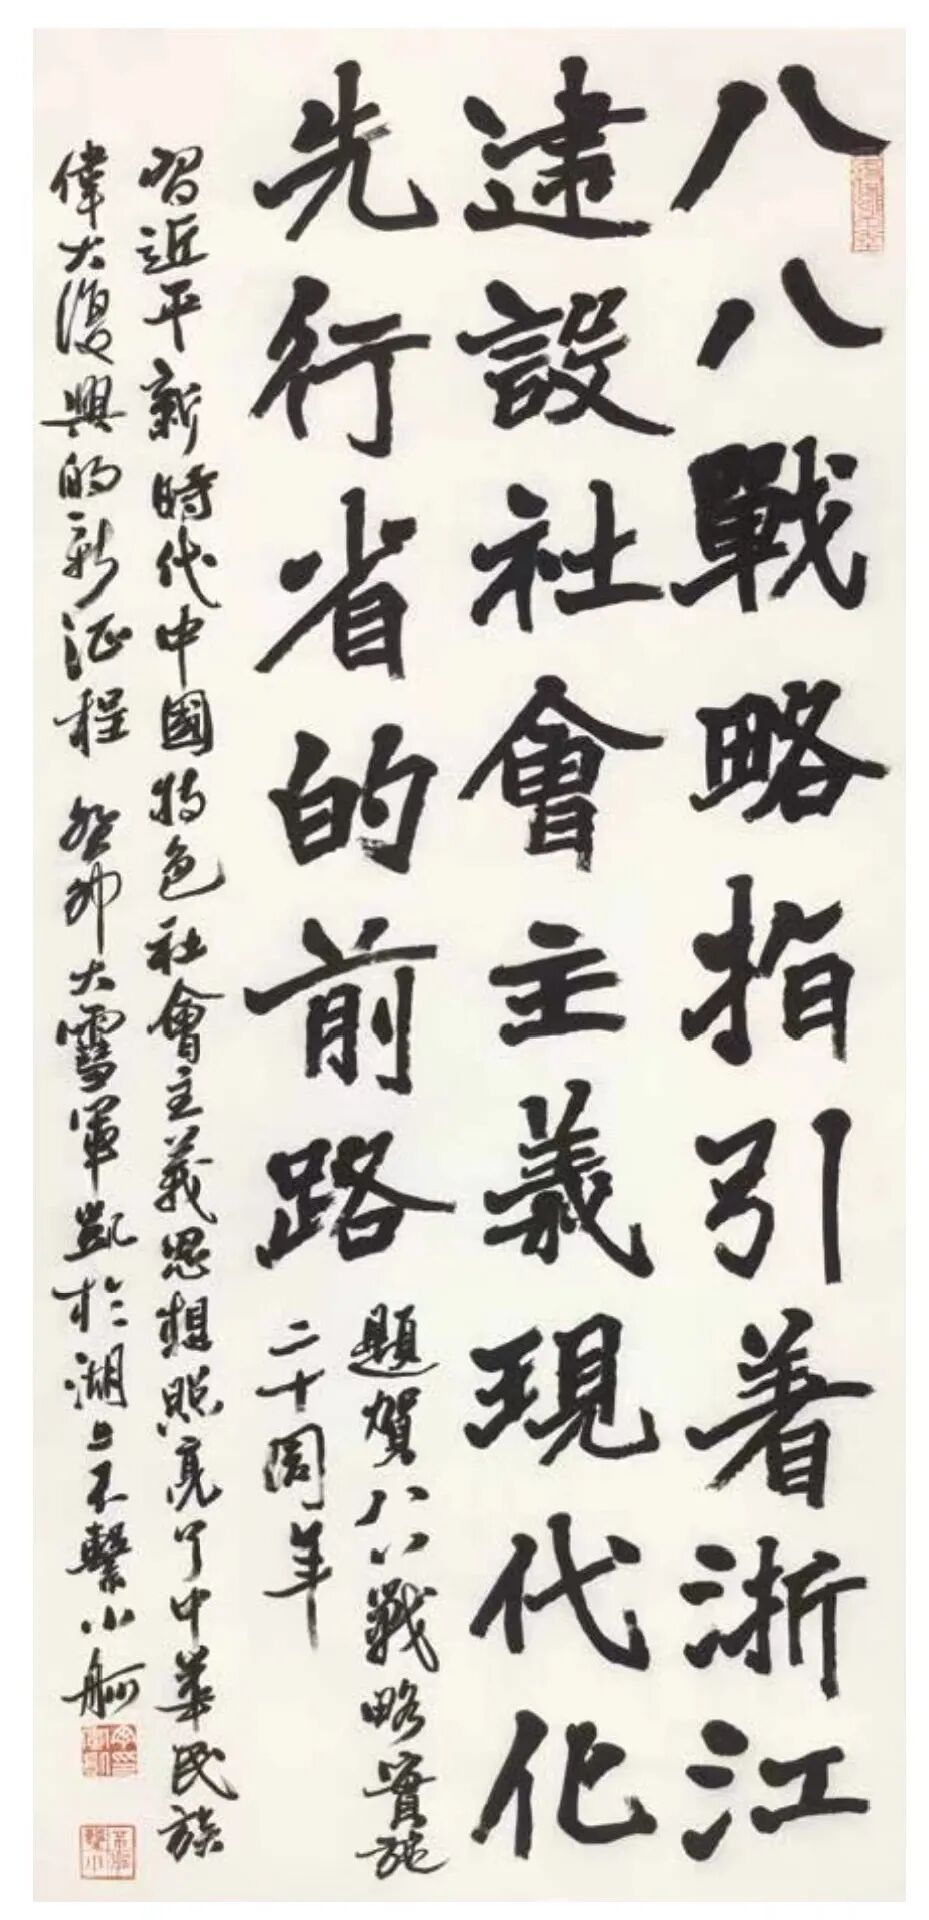 八八戰略指引着浙江
建設社會主義現代化
先行省的前路
題賀八八戰略實施
二十周年
習近平新時代中國特色社會主義思想照亮了中華民族
偉大復興的新征程 癸卯大雪軍凱於湖上不繫小舸